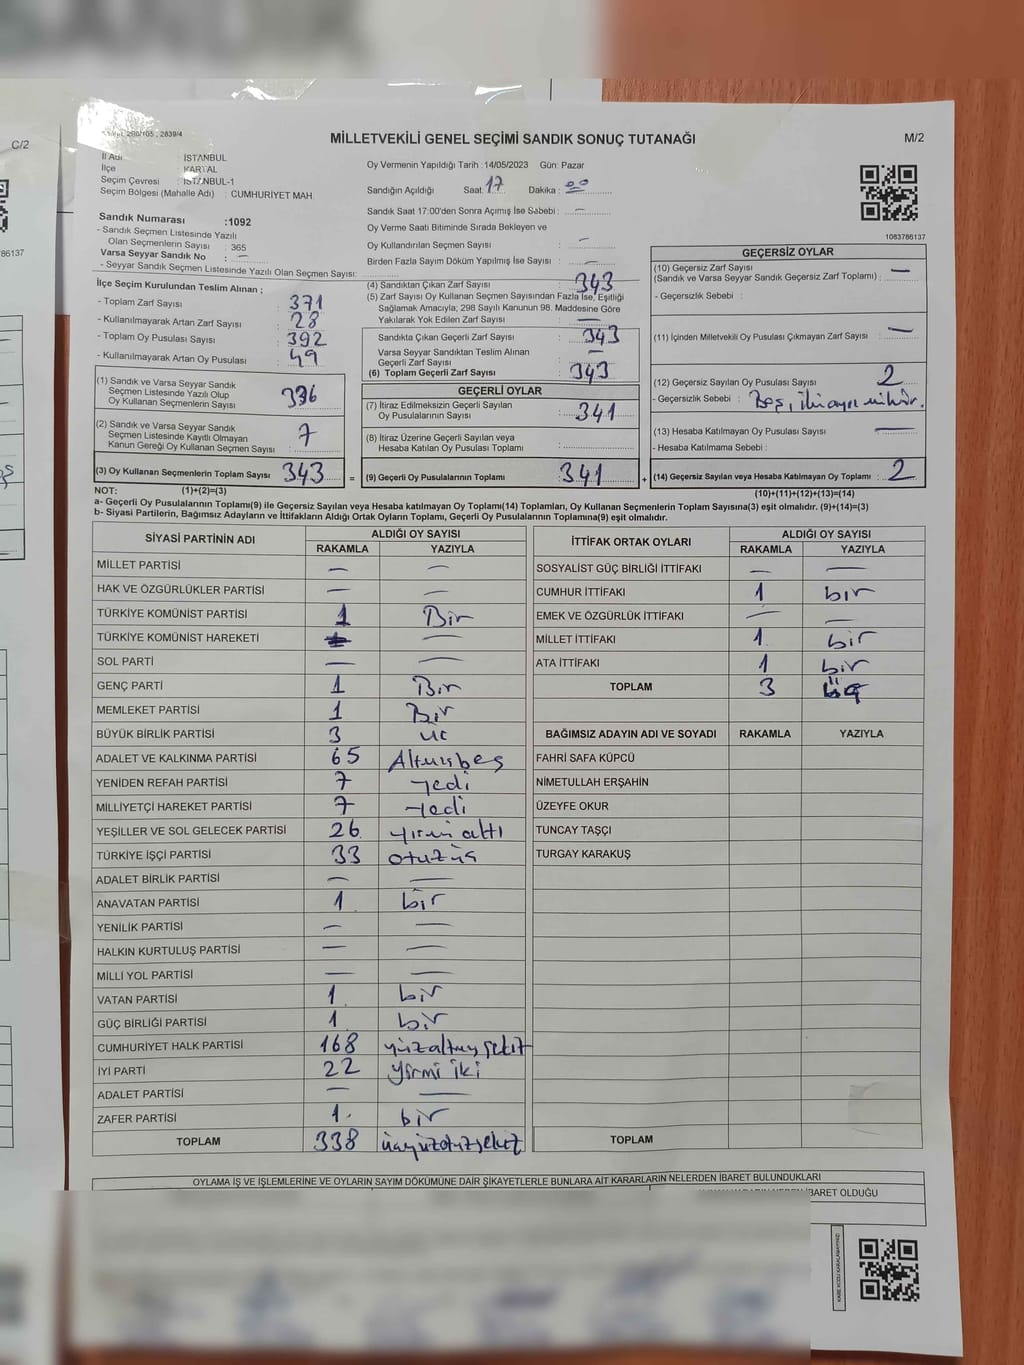 C/2
MİLLETVEKİLİ GENEL SEÇİMİ SANDIK SONUÇ TUTANAĞI
M/2
İl Adı : İSTANBUL
İlçe : KARTAL
Seçim Çevresi : İSTANBUL-1
Seçim Bölgesi (Mahalle Adı) : CUMHURİYET MAH
Oy Vermenin Yapıldığı Tarih : 14/05/2023 Gün: Pazar
Sandığın Açıldığı Saat: 17 Dakika : 00
Sandık Saat 17:00'den Sonra Açılmış İse Sebebi : —
Oy Verme Saati Bitiminde Sırada Bekleyen ve
Oy Kullandırılan Seçmen Sayısı : —
Birden Fazla Sayım Döküm Yapılmış İse Sayısı : —
1083786137
Sandık Numarası :1092
- Sandık Seçmen Listesinde Yazılı
Olan Seçmenlerin Sayısı : 365
Varsa Seyyar Sandık No : —
- Seyyar Sandık Seçmen Listesinde Yazılı Olan Seçmen Sayısı:
İlçe Seçim Kurulundan Teslim Alınan ;
- Toplam Zarf Sayısı : 371
- Kullanılmayarak Artan Zarf Sayısı : 28
- Toplam Oy Pusulası Sayısı : 392
- Kullanılmayarak Artan Oy Pusulası : 49
(1) Sandık ve Varsa Seyyar Sandık
Seçmen Listesinde Yazılı Olup
Oy Kullanan Seçmenlerin Sayısı : 336
(2) Sandık ve Varsa Seyyar Sandık
Seçmen Listesinde Kayıtlı Olmayan
Kanun Gereği Oy Kullanan Seçmen Sayısı : 7
(3) Oy Kullanan Seçmenlerin Toplam Sayısı : 343 =
(4) Sandıktan Çıkan Zarf Sayısı : 343
(5) Zarf Sayısı Oy Kullanan Seçmen Sayısından Fazla İse, Eşitliği
Sağlamak Amacıyla; 298 Sayılı Kanunun 98. Maddesine Göre
Yakılarak Yok Edilen Zarf Sayısı : —
Sandıkta Çıkan Geçerli Zarf Sayısı : 343
Varsa Seyyar Sandıktan Teslim Alınan
Geçerli Zarf Sayısı : —
(6) Toplam Geçerli Zarf Sayısı : 343
GEÇERLİ OYLAR
(7) İtiraz Edilmeksizin Geçerli Sayılan
Oy Pusulalarının Sayısı : 341
(8) İtiraz Üzerine Geçerli Sayılan veya
Hesaba Katılan Oy Pusulası Toplamı :
(9) Geçerli Oy Pusulalarının Toplamı : 341 +
GEÇERSİZ OYLAR
(10) Geçersiz Zarf Sayısı
(Sandık ve Varsa Seyyar Sandık Geçersiz Zarf Toplamı) : —
- Geçersizlik Sebebi :
(11) İçinden Milletvekili Oy Pusulası Çıkmayan Zarf Sayısı : —
(12) Geçersiz Sayılan Oy Pusulası Sayısı : 2
- Geçersizlik Sebebi : Boş,
(13) Hesaba Katılmayan Oy Pusulası Sayısı : —
- Hesaba Katılmama Sebebi :
(14) Geçersiz Sayılan veya Hesaba Katılmayan Oy Toplamı : 2
NOT: (1)+(2)=(3)
(10)+(11)+(12)+(13)=(14)
a- Geçerli Oy Pusulalarının Toplamı(9) ile Geçersiz Sayılan veya Hesaba katılmayan Oy Toplamı(14) Toplamları, Oy Kullanan Seçmenlerin Toplam Sayısına(3) eşit olmalıdır. (9)+(14)=(3)
b- Siyasi Partilerin, Bağımsız Adayların ve İttifakların Aldığı Ortak Oyların Toplamı, Geçerli Oy Pusulalarının Toplamına(9) eşit olmalıdır.
SİYASİ PARTİNİN ADI ALDIĞI OY SAYISI
RAKAMLA YAZIYLA
MİLLET PARTİSİ — —
HAK VE ÖZGÜRLÜKLER PARTİSİ — —
TÜRKİYE KOMÜNİST PARTİSİ 1 Bir
TÜRKİYE KOMÜNİST HAREKETİ —
SOL PARTİ — —
GENÇ PARTİ 1 Bir
MEMLEKET PARTİSİ 1 Bir
BÜYÜK BİRLİK PARTİSİ 3 üc
ADALET VE KALKINMA PARTİSİ 65 Altmışbeş
YENİDEN REFAH PARTİSİ 7 yedi
MİLLİYETÇİ HAREKET PARTİSİ 7 yedi
YEŞİLLER VE SOL GELECEK PARTİSİ 26 yirmi altı
TÜRKİYE İŞÇİ PARTİSİ 33 otuzüç
ADALET BİRLİK PARTİSİ — —
ANAVATAN PARTİSİ 1 bir
YENİLİK PARTİSİ — —
HALKIN KURTULUŞ PARTİSİ — —
MİLLİ YOL PARTİSİ — —
VATAN PARTİSİ 1 bir
GÜÇ BİRLİĞİ PARTİSİ 1 bir
CUMHURİYET HALK PARTİSİ 168 yüzaltmışsekiz
İYİ PARTİ 22 Yirmi iki
ADALET PARTİSİ — —
ZAFER PARTİSİ 1 bir
TOPLAM 338 üçyüzotuzsekiz
İTTİFAK ORTAK OYLARI ALDIĞI OY SAYISI
RAKAMLA YAZIYLA
SOSYALİST GÜÇ BİRLİĞİ İTTİFAKI — —
CUMHUR İTTİFAKI 1 bir
EMEK VE ÖZGÜRLÜK İTTİFAKI — —
MİLLET İTTİFAKI 1 bir
ATA İTTİFAKI 1 bir
TOPLAM 3 üç
BAĞIMSIZ ADAYIN ADI VE SOYADI RAKAMLA YAZIYLA
FAHRİ SAFA KÜPCÜ
NİMETULLAH ERŞAHİN
ÜZEYFE OKUR
TUNCAY TAŞÇI
TURGAY KARAKUŞ
TOPLAM
OYLAMA İŞ VE İŞLEMLERİNE VE OYLARIN SAYIM DÖKÜMÜNE DAİR ŞİKAYETLERLE BUNLARA AİT KARARLARIN NELERDEN İBARET BULUNDUKLARI
İBARET OLDUĞU